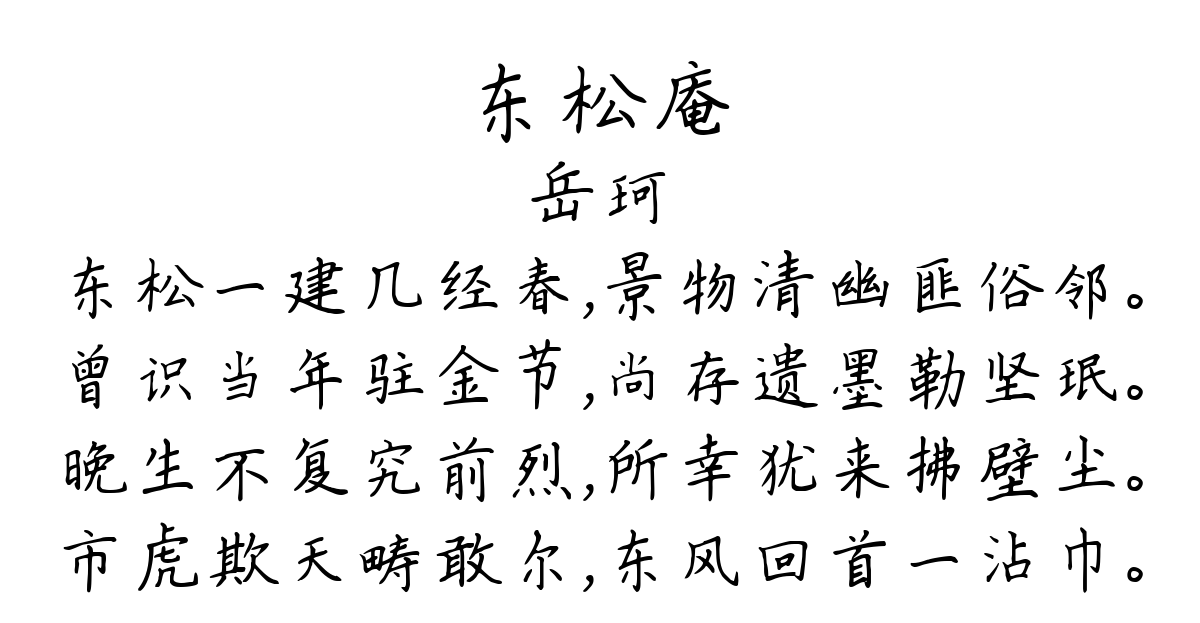 东松庵
岳珂
东松一建几经春,景物清幽匪俗邻。
曾识当年驻金节,尚存遗墨勒坚珉。
晚生不复究前烈,所幸犹来拂壁尘。
市虎欺天畴敢尔,东风回首一沾巾。